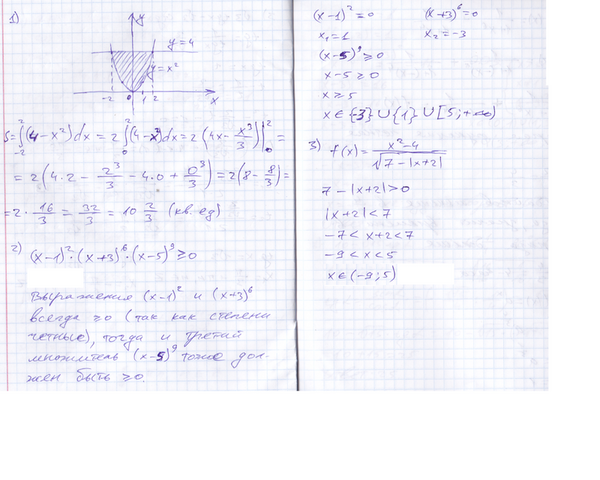 1)
y
y=4
y=x²
-2 0 1 2 x
S=∫₋₂²(4-x²)dx = 2∫₀²(4-x²)dx = 2(4x-x³/3)|₀² =
= 2(4·2 - 2³/3 - 4·0 + 0³/3) = 2(8-8/3) =
= 2·16/3 = 32/3 = 10 2/3 (кв.ед)
2) (x-1)²·(x+3)⁶·(x-5)⁹≥0
Выражения (x-1)² и (x+3)⁶
всегда ≥0 (так как степени
четные), тогда и третий
множитель (x-5)⁹ тоже дол-
жен быть ≥0.
(x-1)²=0 (x+3)⁶=0
x₁=1 x₂=-3
(x-5)⁹≥0
x-5≥0
x≥5
x∈{-3}∪{1}∪[5;+∞)
3) f(x)=(x²-4)/√(7-|x+2|)
7-|x+2|>0
|x+2|<7
-7<x+2<7
-9<x<5
x∈(-9;5)